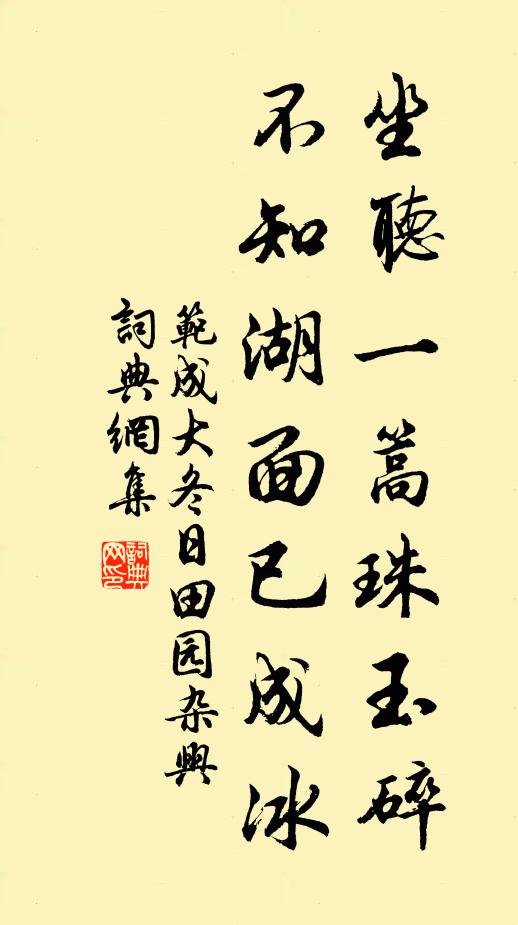 坐聽一篙珠玉碎
不知湖面已成冰
範成大冬日田园杂興
詞典網集
詞典网印